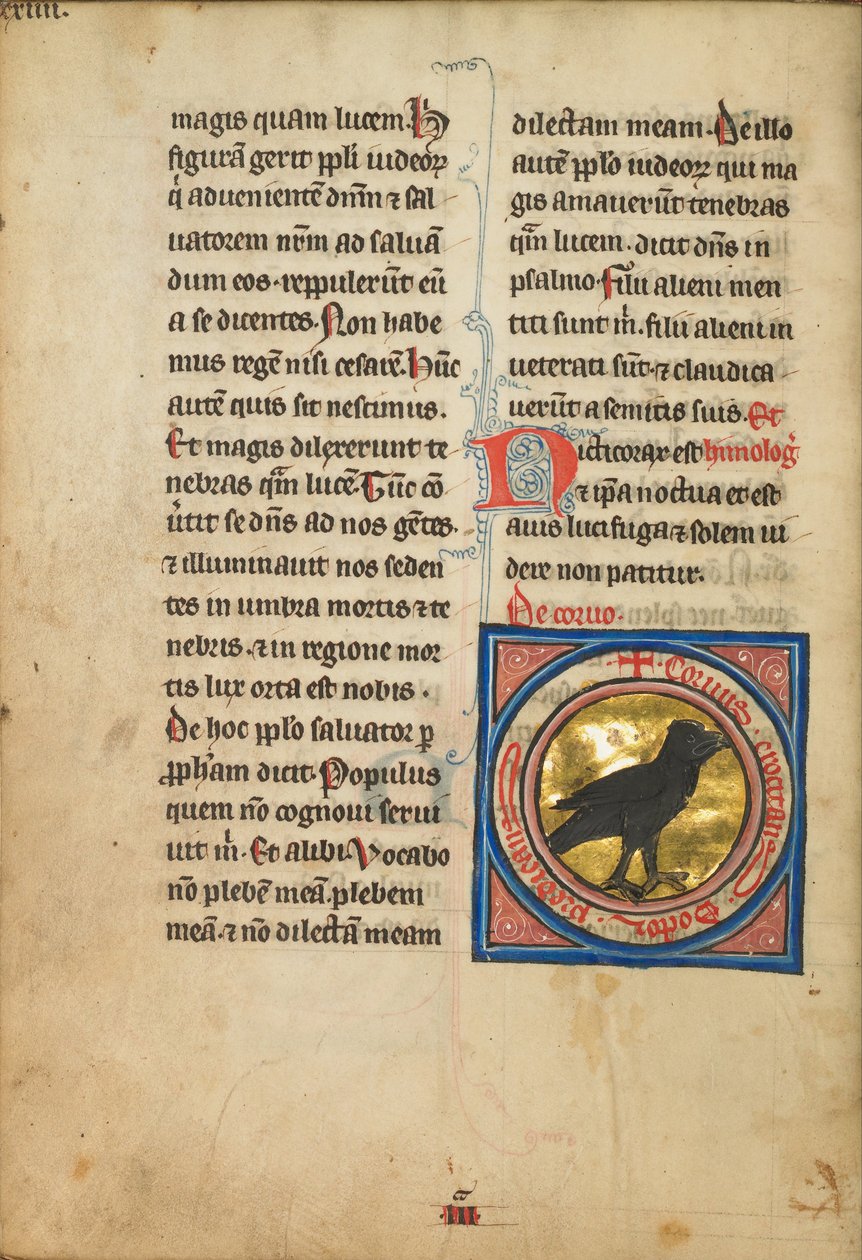 xxiiii.
magis quam lucem. H
figurā gerit ppłi iudeoꝝ
q̇ advenientē dn̄m ⁊ sal
uatorem nr̄m ad saluā
dum eos. reppulerūt eū
a se dicentes. Non habe
mus regē nisi cesarē. Hūc
autē quis sit nescimus.
Et magis dilexerunt te
nebras qᷓm lucē. Tūc cō
u̇tit se dn̄s ad nos gētes.
⁊ illuminauit nos seden
tes in umbra mortis ⁊ te
nebris. ⁊ in regione mor
tis lux orta est nobis.
De hoc ppło saluator ꝑ
ꝓph̄am dicit. Populus
quem nō cognoui serui
uit ṁ. Et alibi. Vocabo
nō plebē meā. plebem
meā. ⁊ nō dilectā meam
dilectam meam. De illo
autē ppło iudeoꝝ qui ma
gis amauerūt tenebras
qᷓm lucem. dicit dn̄s in
psalmo. Filii alieni men
titi sunt ṁ. filii alieni in
ueterati sūt. ⁊ claudica
uerūt a semitis suis. Et
Nicticorax est himolog̉
⁊ ip̄a noctua et est
auis lucifuga ⁊ solem ui
dere non patitur.
De coruo.
+ Coruus. crocitans. Doctor. predicans
a
.III.